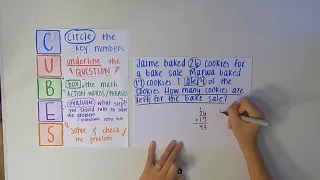 C
Circle the
key numbers
U
underline the
QUESTION?
B
box the math
ACTION WORDS/PHRASES
E
evaluate what steps
you should take to solve
the problem
S
solve & check
the problem
Jaime baked 26 cookies for
a bake sale Marwa baked
17 cookies I ate 9 of the
cookies How many cookies are
left for the bake sale?
1
26
+17
43